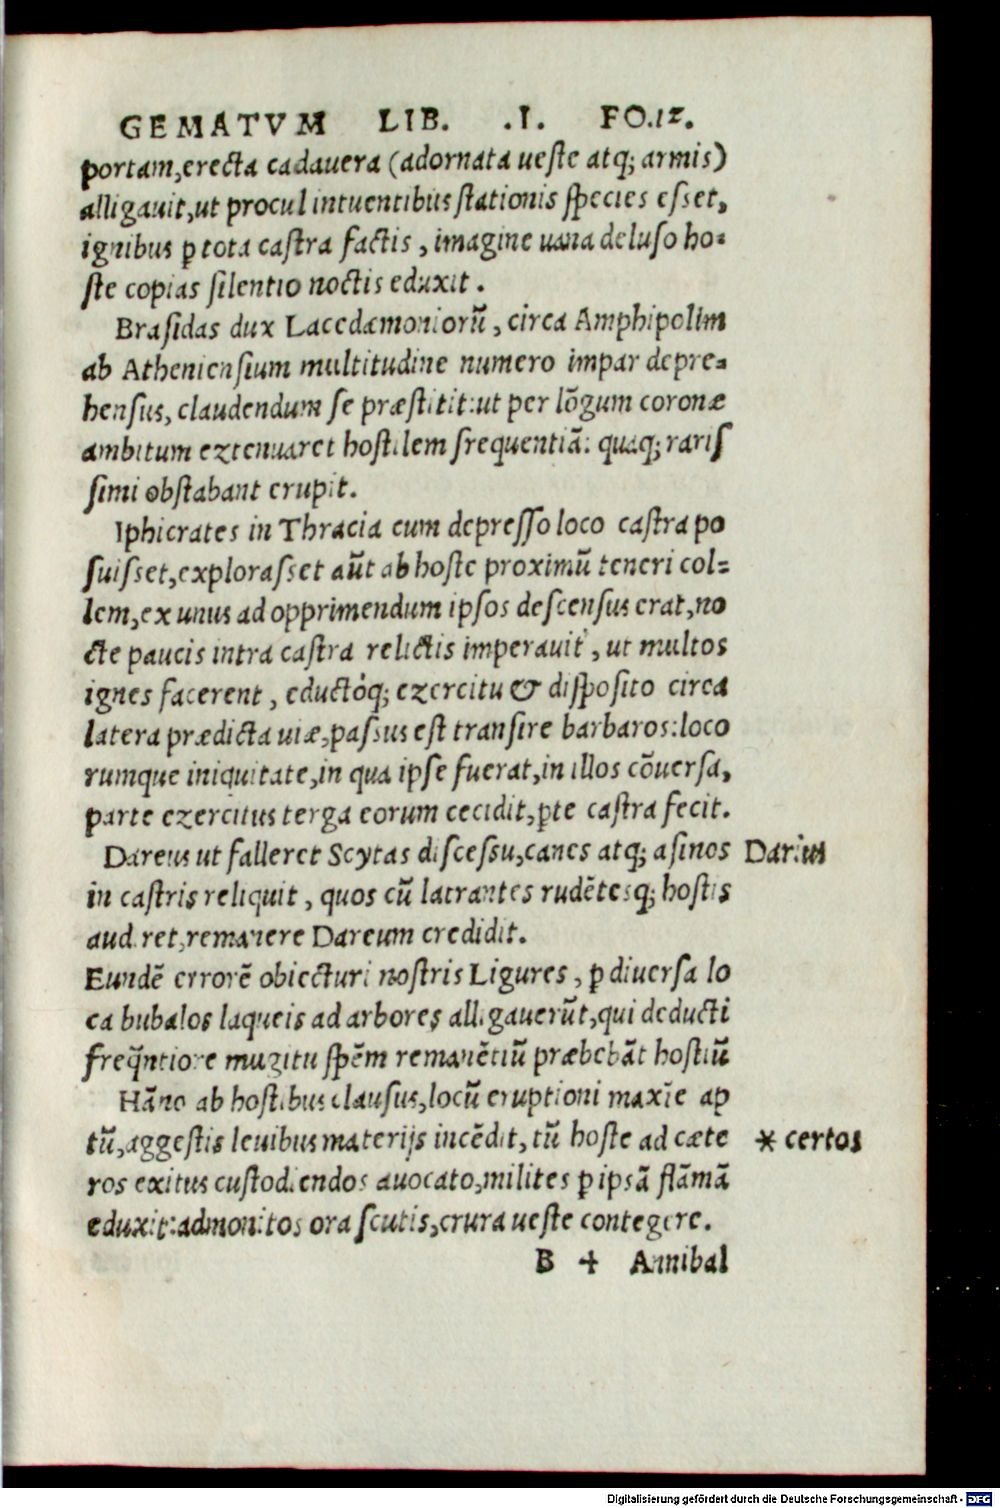 GEMATVM LIB. .I. FO.12.
portam,erecta cadauera (adornata ueste atq; armis)
alligauit,ut procul intuentibus stationis species esset,
ignibus ꝑ tota castra factis , imagine uana deluso ho-
ste copias silentio noctis eduxit .
Brasidas dux Lacedæmoniorū , circa Amphipolim
ab Atheniensium multitudine numero impar depre-
hensus, claudendum se præstitit:ut per lōgum coronæ
ambitum extenuaret hostilem frequentiā: quaq; raris
simi obstabant erupit.
Iphicrates in Thracia cum depresso loco castra po
suisset,explorasset aūt ab hoste proximū teneri col-
lem,ex unus ad opprimendum ipsos descensus erat,no
cte paucis intra castra relictis imperauit , ut multos
ignes facerent , eductóq; exercitu & disposito circa
latera prædicta uiæ,passus est transire barbaros:loco
rumque iniquitate,in qua ipse fuerat,in illos cōuersa,
parte exercitus terga eorum cecidit,ꝑte castra fecit.
Dareus ut falleret Scytas discessu,canes atq; asinos
Darius
in castris reliquit , quos cū latrantes rudētesq; hostis
audiret,remanere Dareum credidit.
Eundē errorē obiecturi nostris Ligures , ꝑ diuersa lo
ca bubalos laqueis ad arbores alligauerūt,qui deducti
freq̄ntiore mugitu spēm remanētiū præbebāt hostiū
Hāno ab hostibus clausus,locū eruptioni maxīe ap
tū,aggestis leuibus materijs incēdit, tū hoste ad cæte
* certos
ros exitus custodiendos auocato,milites ꝑ ipsā flāmā
eduxit:admonitos ora scutis,crura ueste contegere.
B 4 Annibal
Digitalisierung gefördert durch die Deutsche Forschungsgemeinschaft - DFG